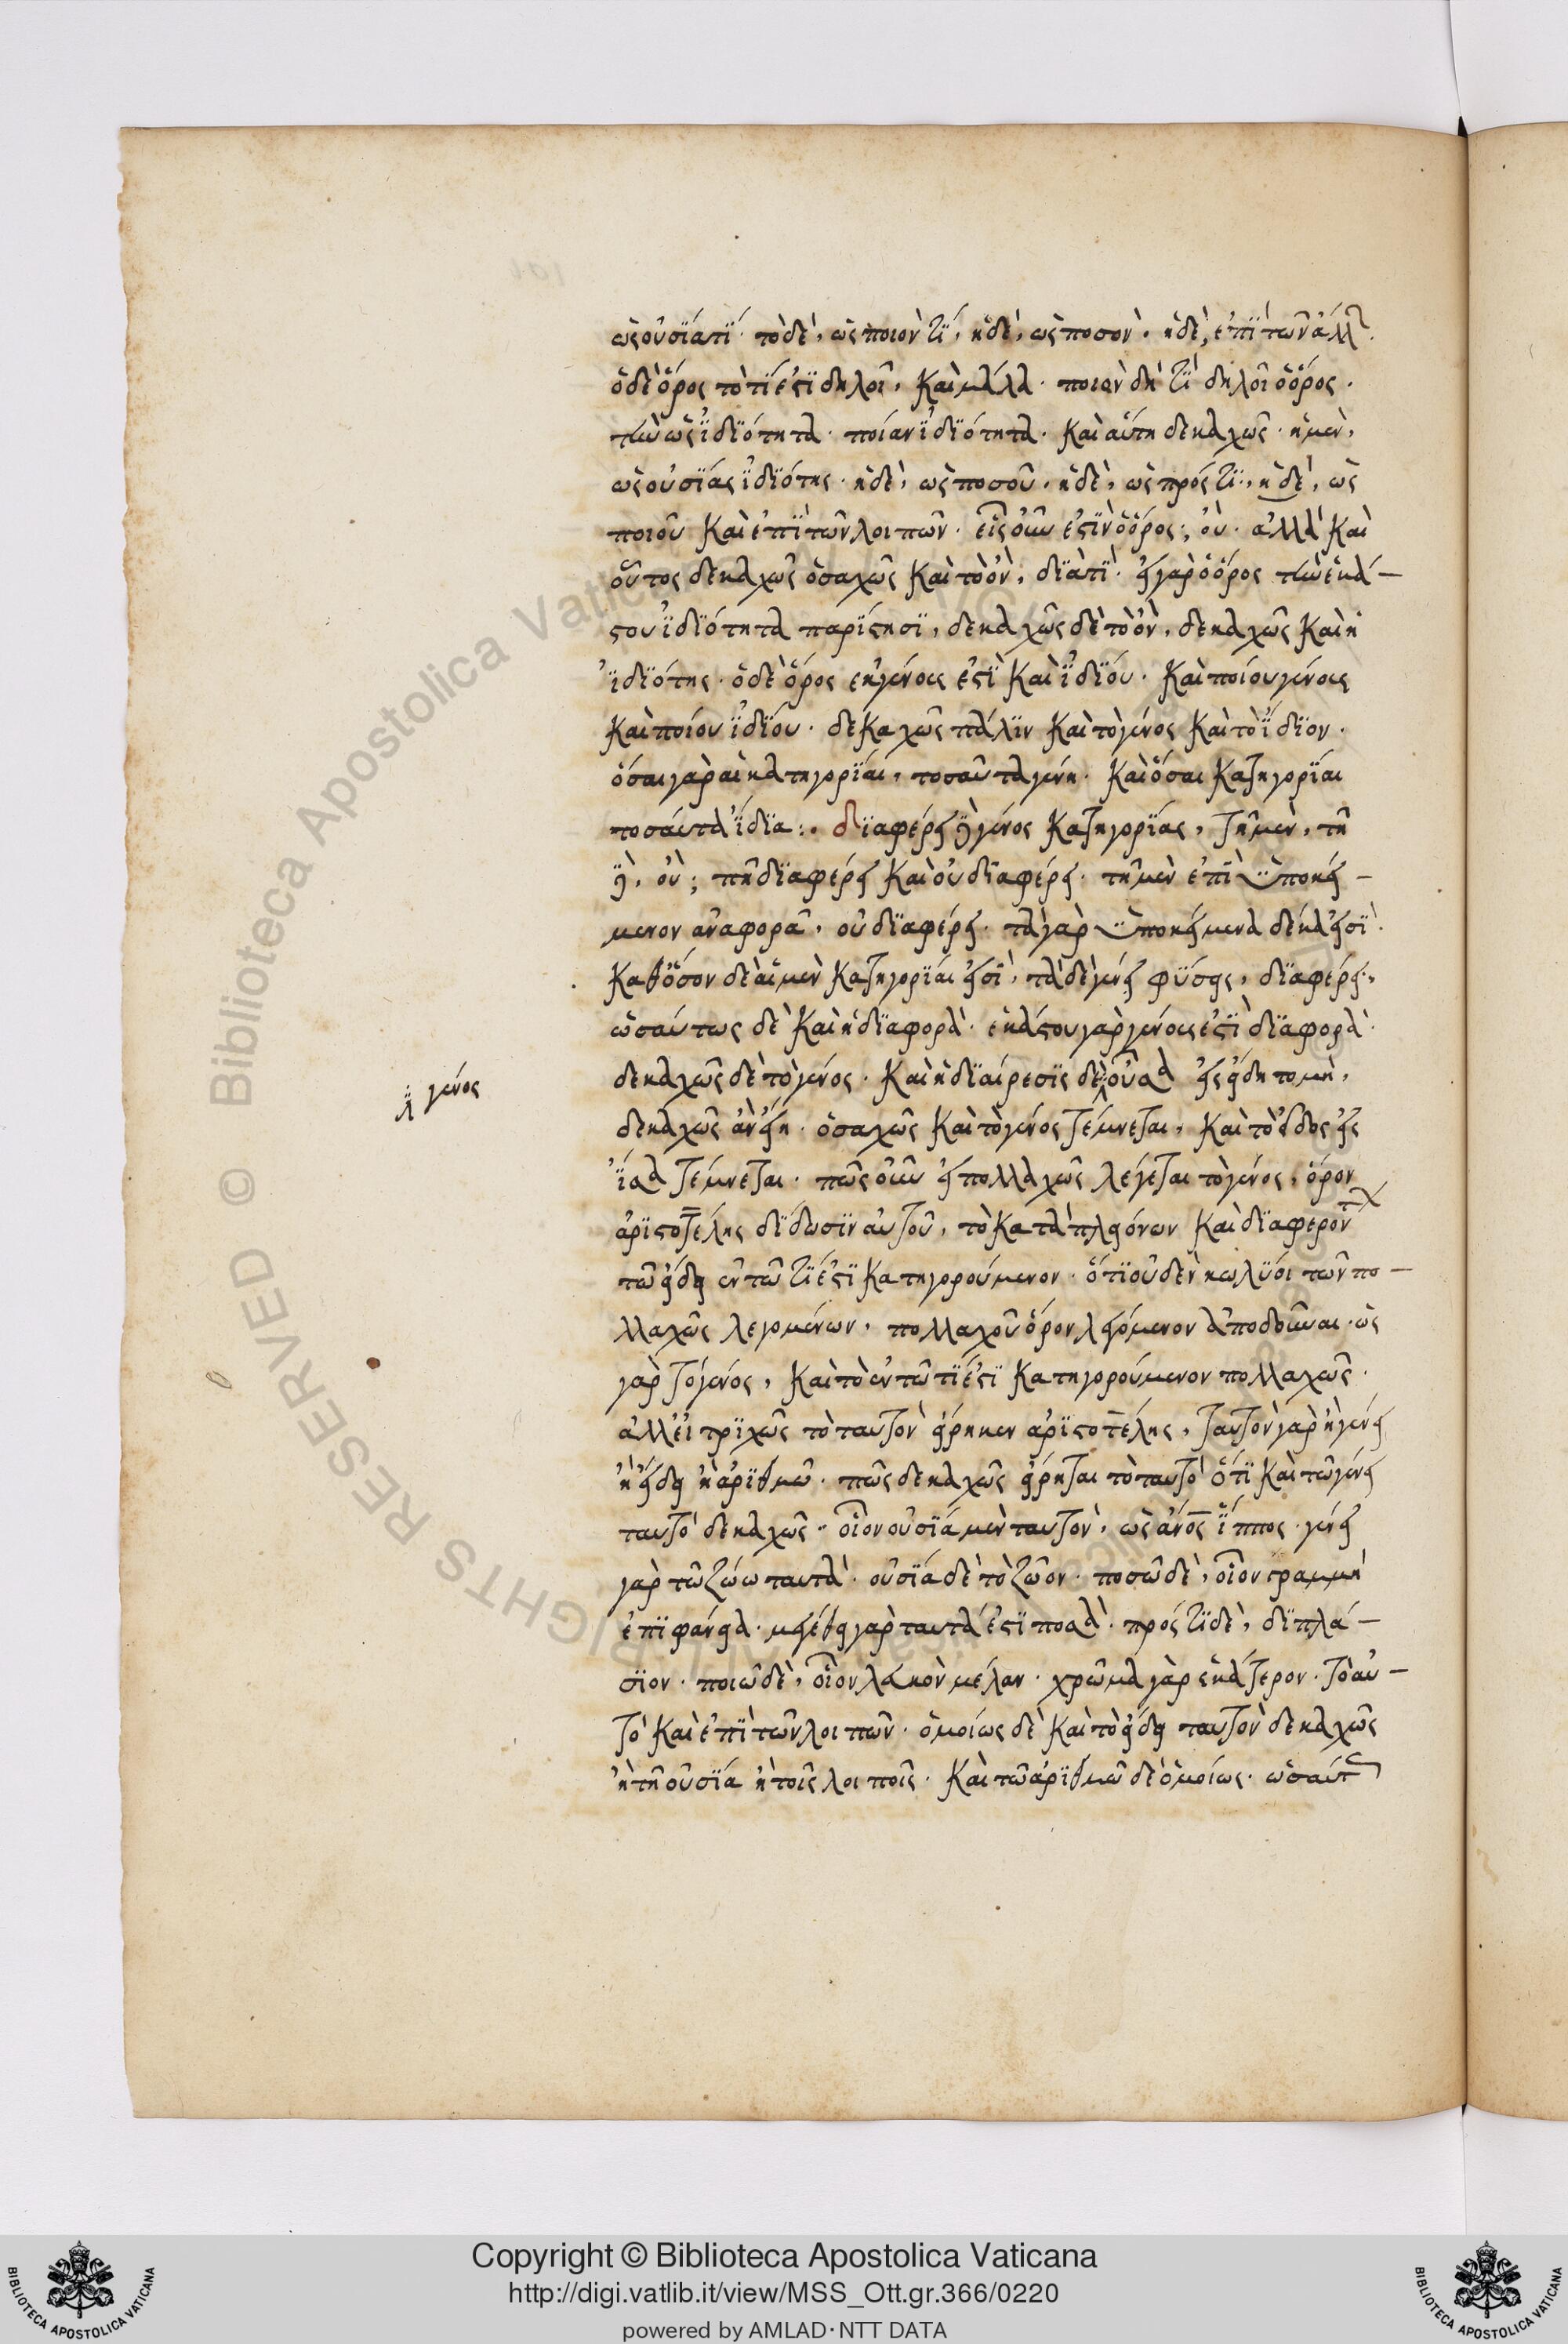 ὡς οὐσία τί· τὸ δὲ, ὡς ποιὸν τί, ἡ δὲ, ὡς ποσὸν, ἡ δὲ, ἐπὶ τῶν ἄλλ
ὁ δὲ ὅρος τὸ τί ἐστι δηλοῖ, καὶ μάλα. ποιὸν δή τι δηλοῖ ὁ ὅρος.
τὴν ὡς ἰδιότητα. ποίαν ἰδιότητα. καὶ αὕτη δεκαχῶς. ἡ μὲν,
ὡς οὐσίας ἰδιότης. ἡ δὲ, ὡς ποσοῦ, ἡ δὲ, ὡς πρός τι, ἡ δὲ, ὡς
ποιοῦ καὶ ἐπὶ τῶν λοιπῶν. εἷς οὖν ἐστὶν ὁ ὅρος; οὐ. ἀλλὰ καὶ
οὗτος δεκαχῶς ὁσαχῶς καὶ τὸ ὂν, διατί. εἰ γὰρ ὁ ὅρος τὴν ἑκά-
στου ἰδιότητα παρίστησι, δεκαχῶς δὲ τὸ ὂν, δεκαχῶς καὶ ἡ
ἰδιότης. ὁ δὲ ὅρος ἐκ γένους ἐστὶ καὶ ἰδίου. καὶ ποίου γένους
καὶ ποίου ἰδίου. δεκαχῶς πάλιν καὶ τὸ γένος καὶ τὸ ἴδιον.
ὅσαι γὰρ αἱ κατηγορίαι, τοσαῦτα γένη. καὶ ὅσαι κατηγορίαι
τοσαῦτα ἴδια:. διαφέρει γένος κατηγορίας, τῇ μὲν, τῇ
οὐ; πῆ διαφέρει καὶ οὐ διαφέρει. τῇ μὲν ἐπὶ ὑποκεί-
μενον ἀναφορᾷ, οὐ διαφέρει. τὰ γὰρ ὑποκείμενα δέκα εἰσί.
καθόσον δὲ αἱ μὲν κατηγορίαι εἰσὶ, τὰ δὲ γένει φύσεις, διαφέρει,
ὡσαύτως δὲ καὶ ἡ διαφορὰ. ἑκάστου γὰρ γένους ἐστὶ διαφορά.
δεκαχῶς δὲ τὸ γένος. καὶ ἡ διαίρεσις δὲ οὖσα εἰς εἴδη τομὴ,
γένος
δεκαχῶς ἂν εἴη. ὁσαχῶς καὶ τὸ γένος τέμνεται, καὶ τὸ εἶδος εἰς
ἴσα τέμνεται. πῶς οὖν εἰ πολλαχῶς λέγεται τὸ γένος, ὅρον
ἀριστοτέλης δίδωσιν αὐτοῦ, τὸ κατὰ πλειόνων καὶ διαφερόντων
τῷ εἴδει ἐν τῷ τί ἐστι κατηγορούμενον. ὅτι οὐδὲν κωλύει τῶν πο-
λλαχῶς λεγομένων, πολλαχοῦ ὅρον λεγόμενον ἀποδοῦναι. ὡς
γὰρ τὸ γένος, καὶ τὸ ἐν τῷ τί ἐστι κατηγορούμενον πολλαχῶς.
ἀλλ' εἰ τριχῶς τὸ ταυτὸν εἴρηκεν ἀριστοτέλης, ταυτὸν γὰρ ἢ γένει
ἢ εἴδει ἢ ἀριθμῷ. πῶς δεκαχῶς εἴρηται τὸ ταυτό ὅτι καὶ τῷ γένει
ταυτὸ δεκαχῶς. οἷον οὐσία μὲν ταυτὸν, ὡς ἄνος ἵππος. γένει
γὰρ τῷ ζώῳ ταυτά. οὐσία δὲ τὸ ζῶον. ποσῷ δὲ, οἷον γραμμὴ
ἐπιφάνεια. μεγέθει γὰρ ταυτά ἐστι ποσά. πρός τι δὲ, διπλά-
σιον. ποιῷ δὲ, οἷον λευκὸν μέλαν. χρῶμα γὰρ ἑκάτερον. τὸ αὐ-
τὸ καὶ ἐπὶ τῶν λοιπῶν. ὁμοίως δὲ καὶ τὸ εἴδει ταυτὸν δεκαχῶς
ἢ τῇ οὐσία ἢ τοῖς λοιποῖς. καὶ τῷ ἀριθμῷ δὲ ὁμοίως. ὡσαύτ
Copyright © Biblioteca Apostolica Vaticana
http://digi.vatlib.it/view/MSS_Ott.gr.366/0220
powered by AMLAD·NTT DATA